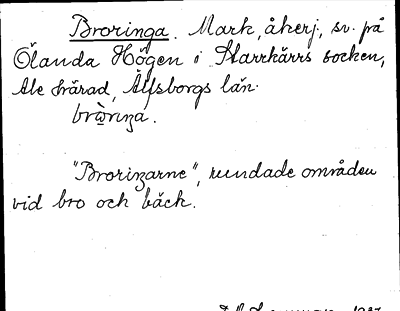 Broringa. Mark, åkerj., sv. på
Ölanda Högen i Starrkärrs socken,
Ale härad, Älfsborgs län.
brὼriŋa.
"Broringarne", rundade områden
vid bro och bäck.